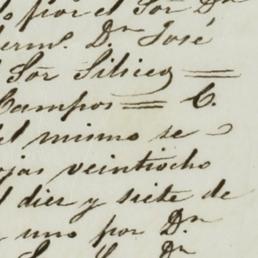 por el Sor Dn
erml. Dn José
Sor Silicey =
Campos = C.
el mismo se-
ojas veintiocho
diez y siete de
uno por Dn
Dn